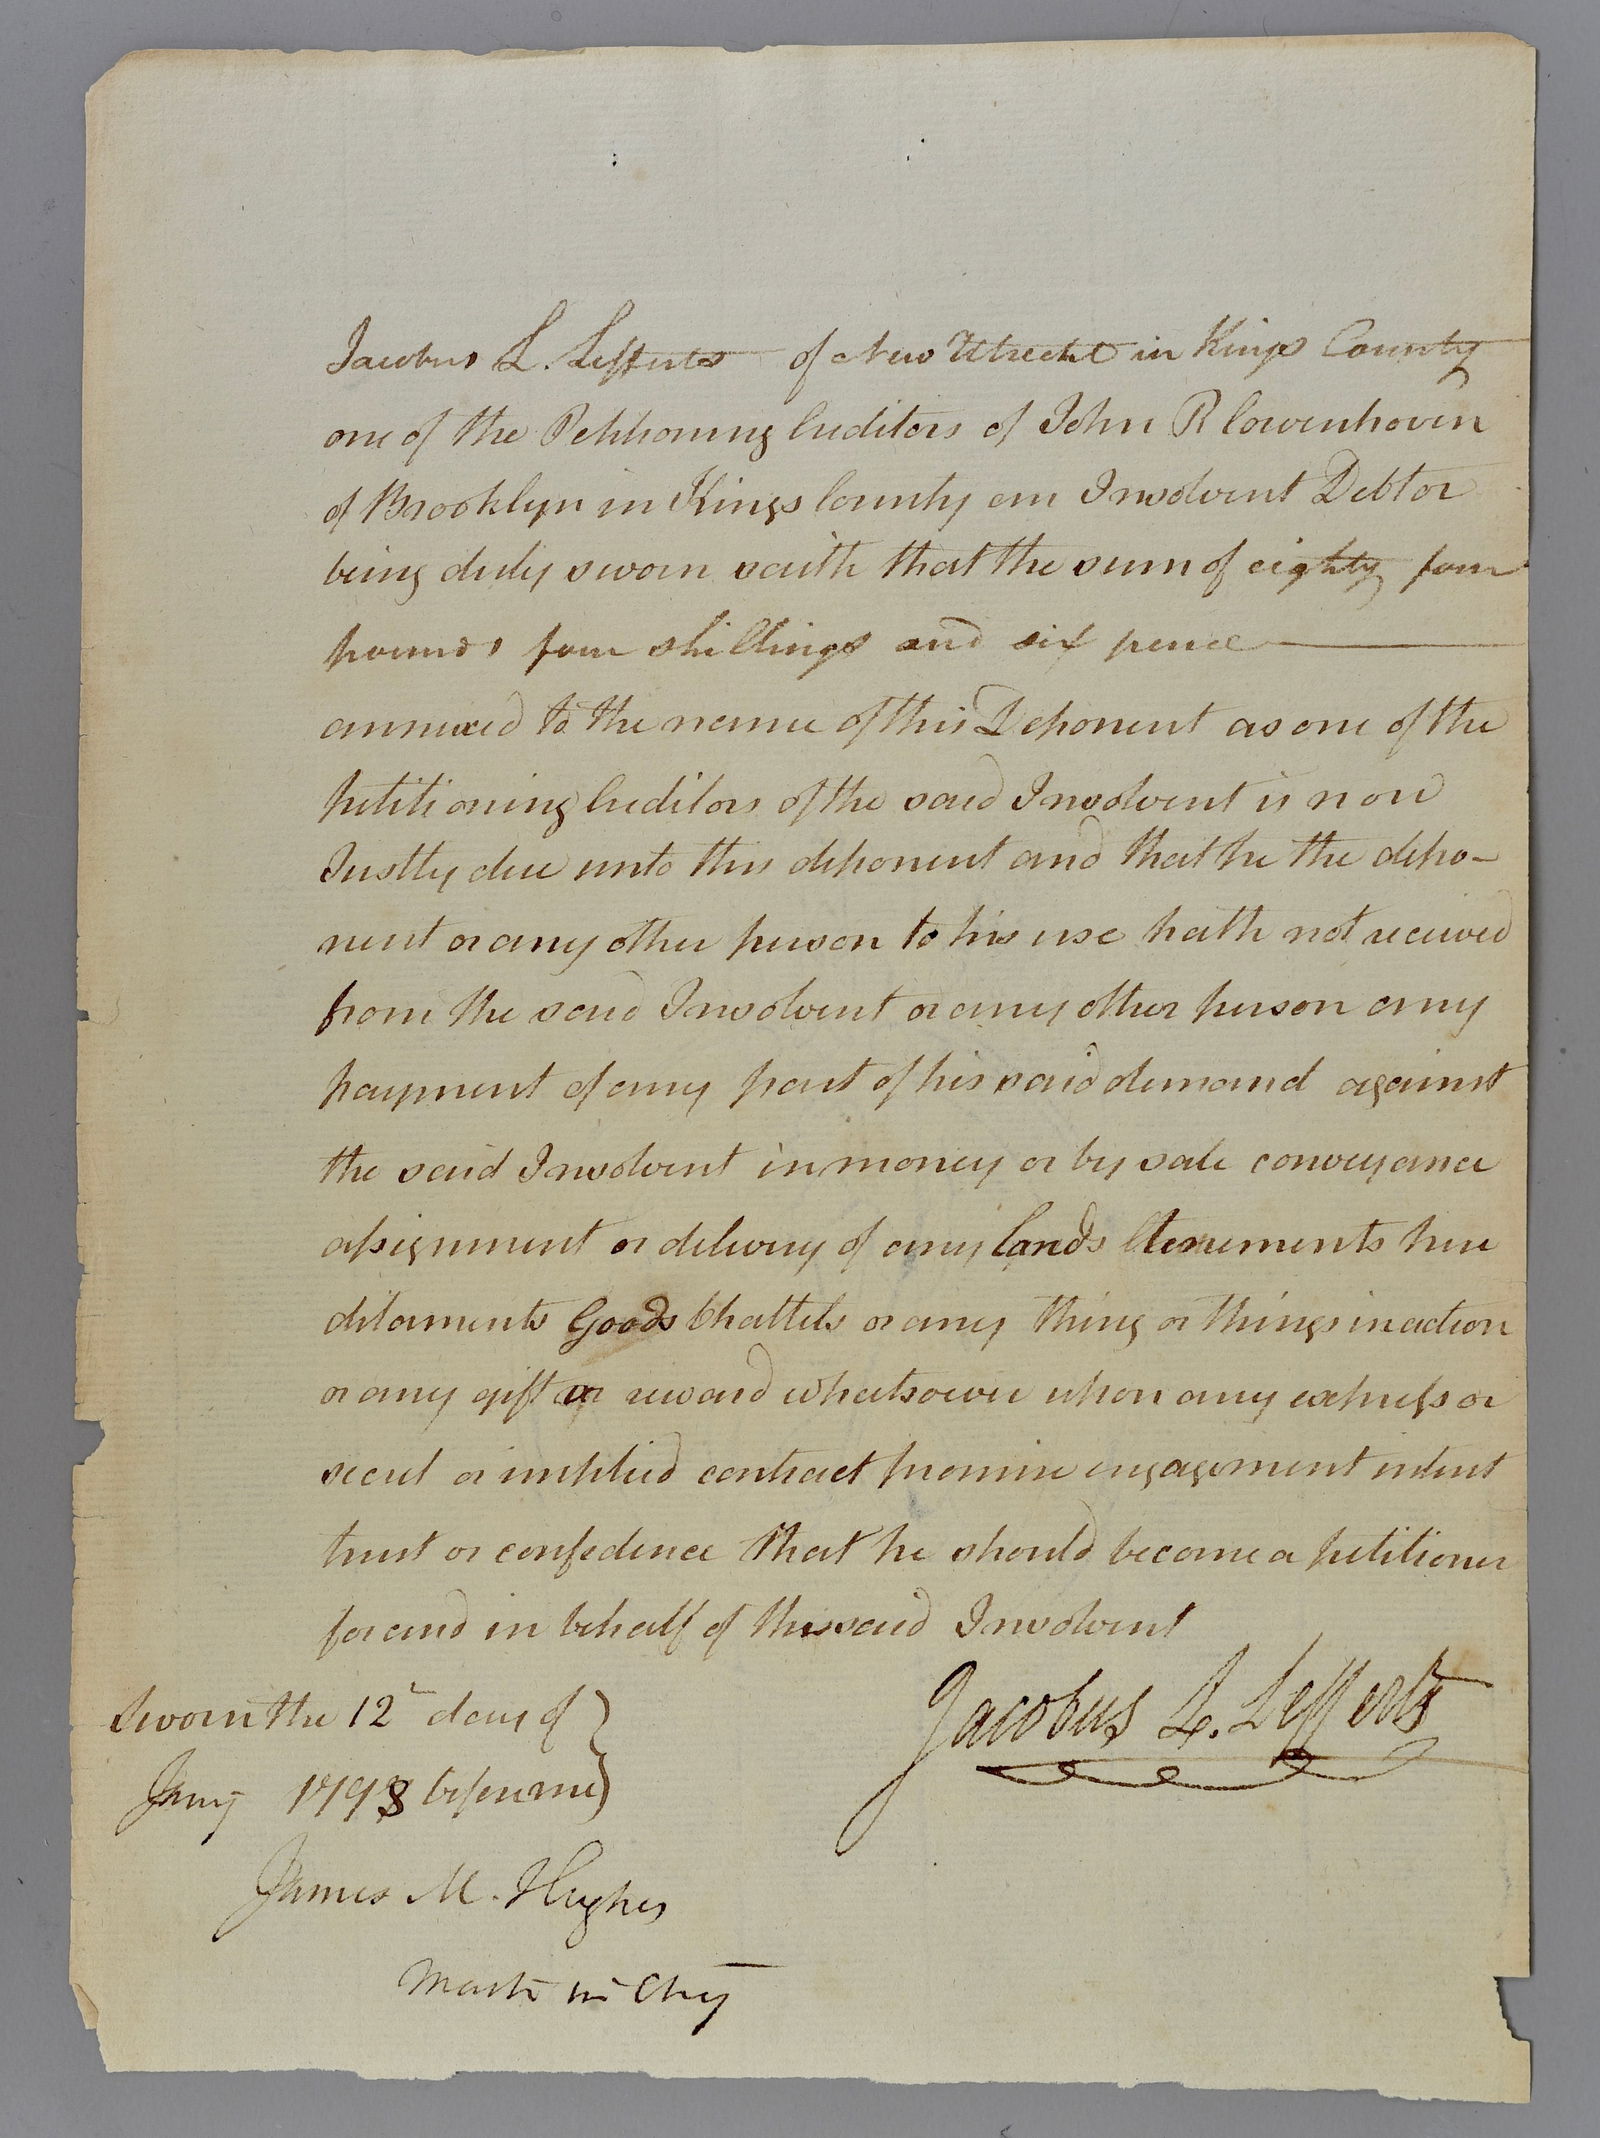 Jacobus L. Lefferts of New Utrecht in Kings County
one of the Petitioning Creditors of John R Cowenhoven
of Brooklyn in Kings County an Insolvent Debtor
being duly sworn saith that the sum of eighty four
pounds four shillings and six pence
annexed to the name of this Deponent as one of the
petitioning Creditors of the said Insolvent is now
Justly due unto this deponent and that he the depo-
nent or any other person to his use hath not received
from the said Insolvent or any other person any
payment of any part of his said demand against
the said Insolvent in money or by sale conveyance
assignment or delivery of any lands tenements here
ditaments Goods Chattels or any thing or things in action
or any gift or reward whatsoever upon any express or
secret or implied contract promise engagement intent
trust or confedence that he should become a petitioner
for and in behalf of the said Insolvent
Jacobus L. Lefferts
Sworn the 12 day of
Jany 1798 before me
James M. Hughes
Mastr in Chy